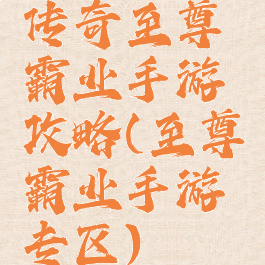 传奇至尊
霸业手游
攻略(至尊
霸业手游
专区)